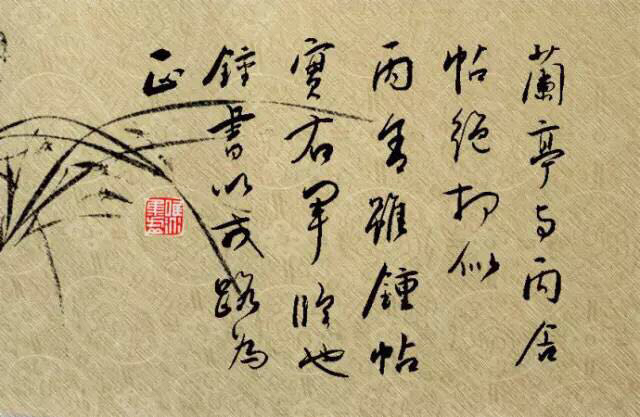 蘭亭与丙舍
帖絕相似
丙舍雖鍾帖
實右軍臨也
鍾書以戎路為
正